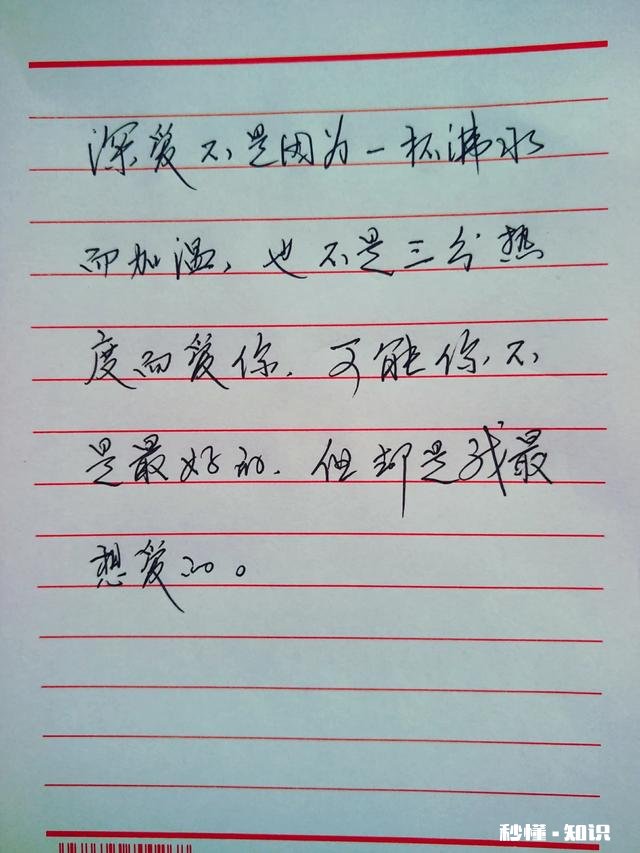 深爱不是因为一杯沸水
而加温，也不是三分热
度而爱你.可能你不
是最好的.但却是我最
想爱的。
秒懂·知识